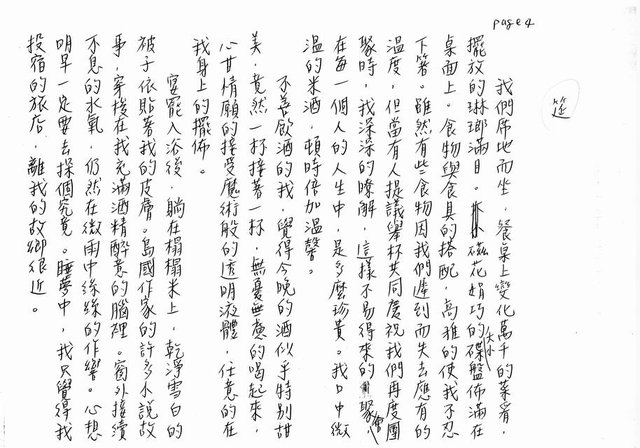 page 4
筵
我們席地而坐，餐桌上變化萬千的菜肴，
擺放的琳瑯滿目。磁花娟巧的大小碟盤佈滿在
桌面上。食物與食具的搭配，高雅的使我不忍
下箸。雖然有些食物因我們遲到而失去應有的
溫度，但當有人提議舉杯共同慶祝我們再度團
聚時，我深深的瞭解，這樣不易得來的聚會，
在每一個人的人生中，是多麼珍貴。我口中微
溫的米酒，頓時倍加溫馨。
不善飲酒的我，覺得今晚的酒似乎特別甜
美，竟然一杯接著一杯，無憂無慮的喝起來，
心甘情願的接受魔術般的透明液體，任意的在
我身上的擺佈。
宴罷入浴後，躺在榻榻米上，乾淨雪白的
被子依貼著我的皮膚。島國作家的許多小說故
事，穿梭在我充滿酒精醉意的腦裡。窗外接續
不息的水氣，仍然在微雨中絲絲的作響。心想
明早一定要去探個究竟。睡夢中，我只覺得我
投宿的旅店，離我的故鄉很近。